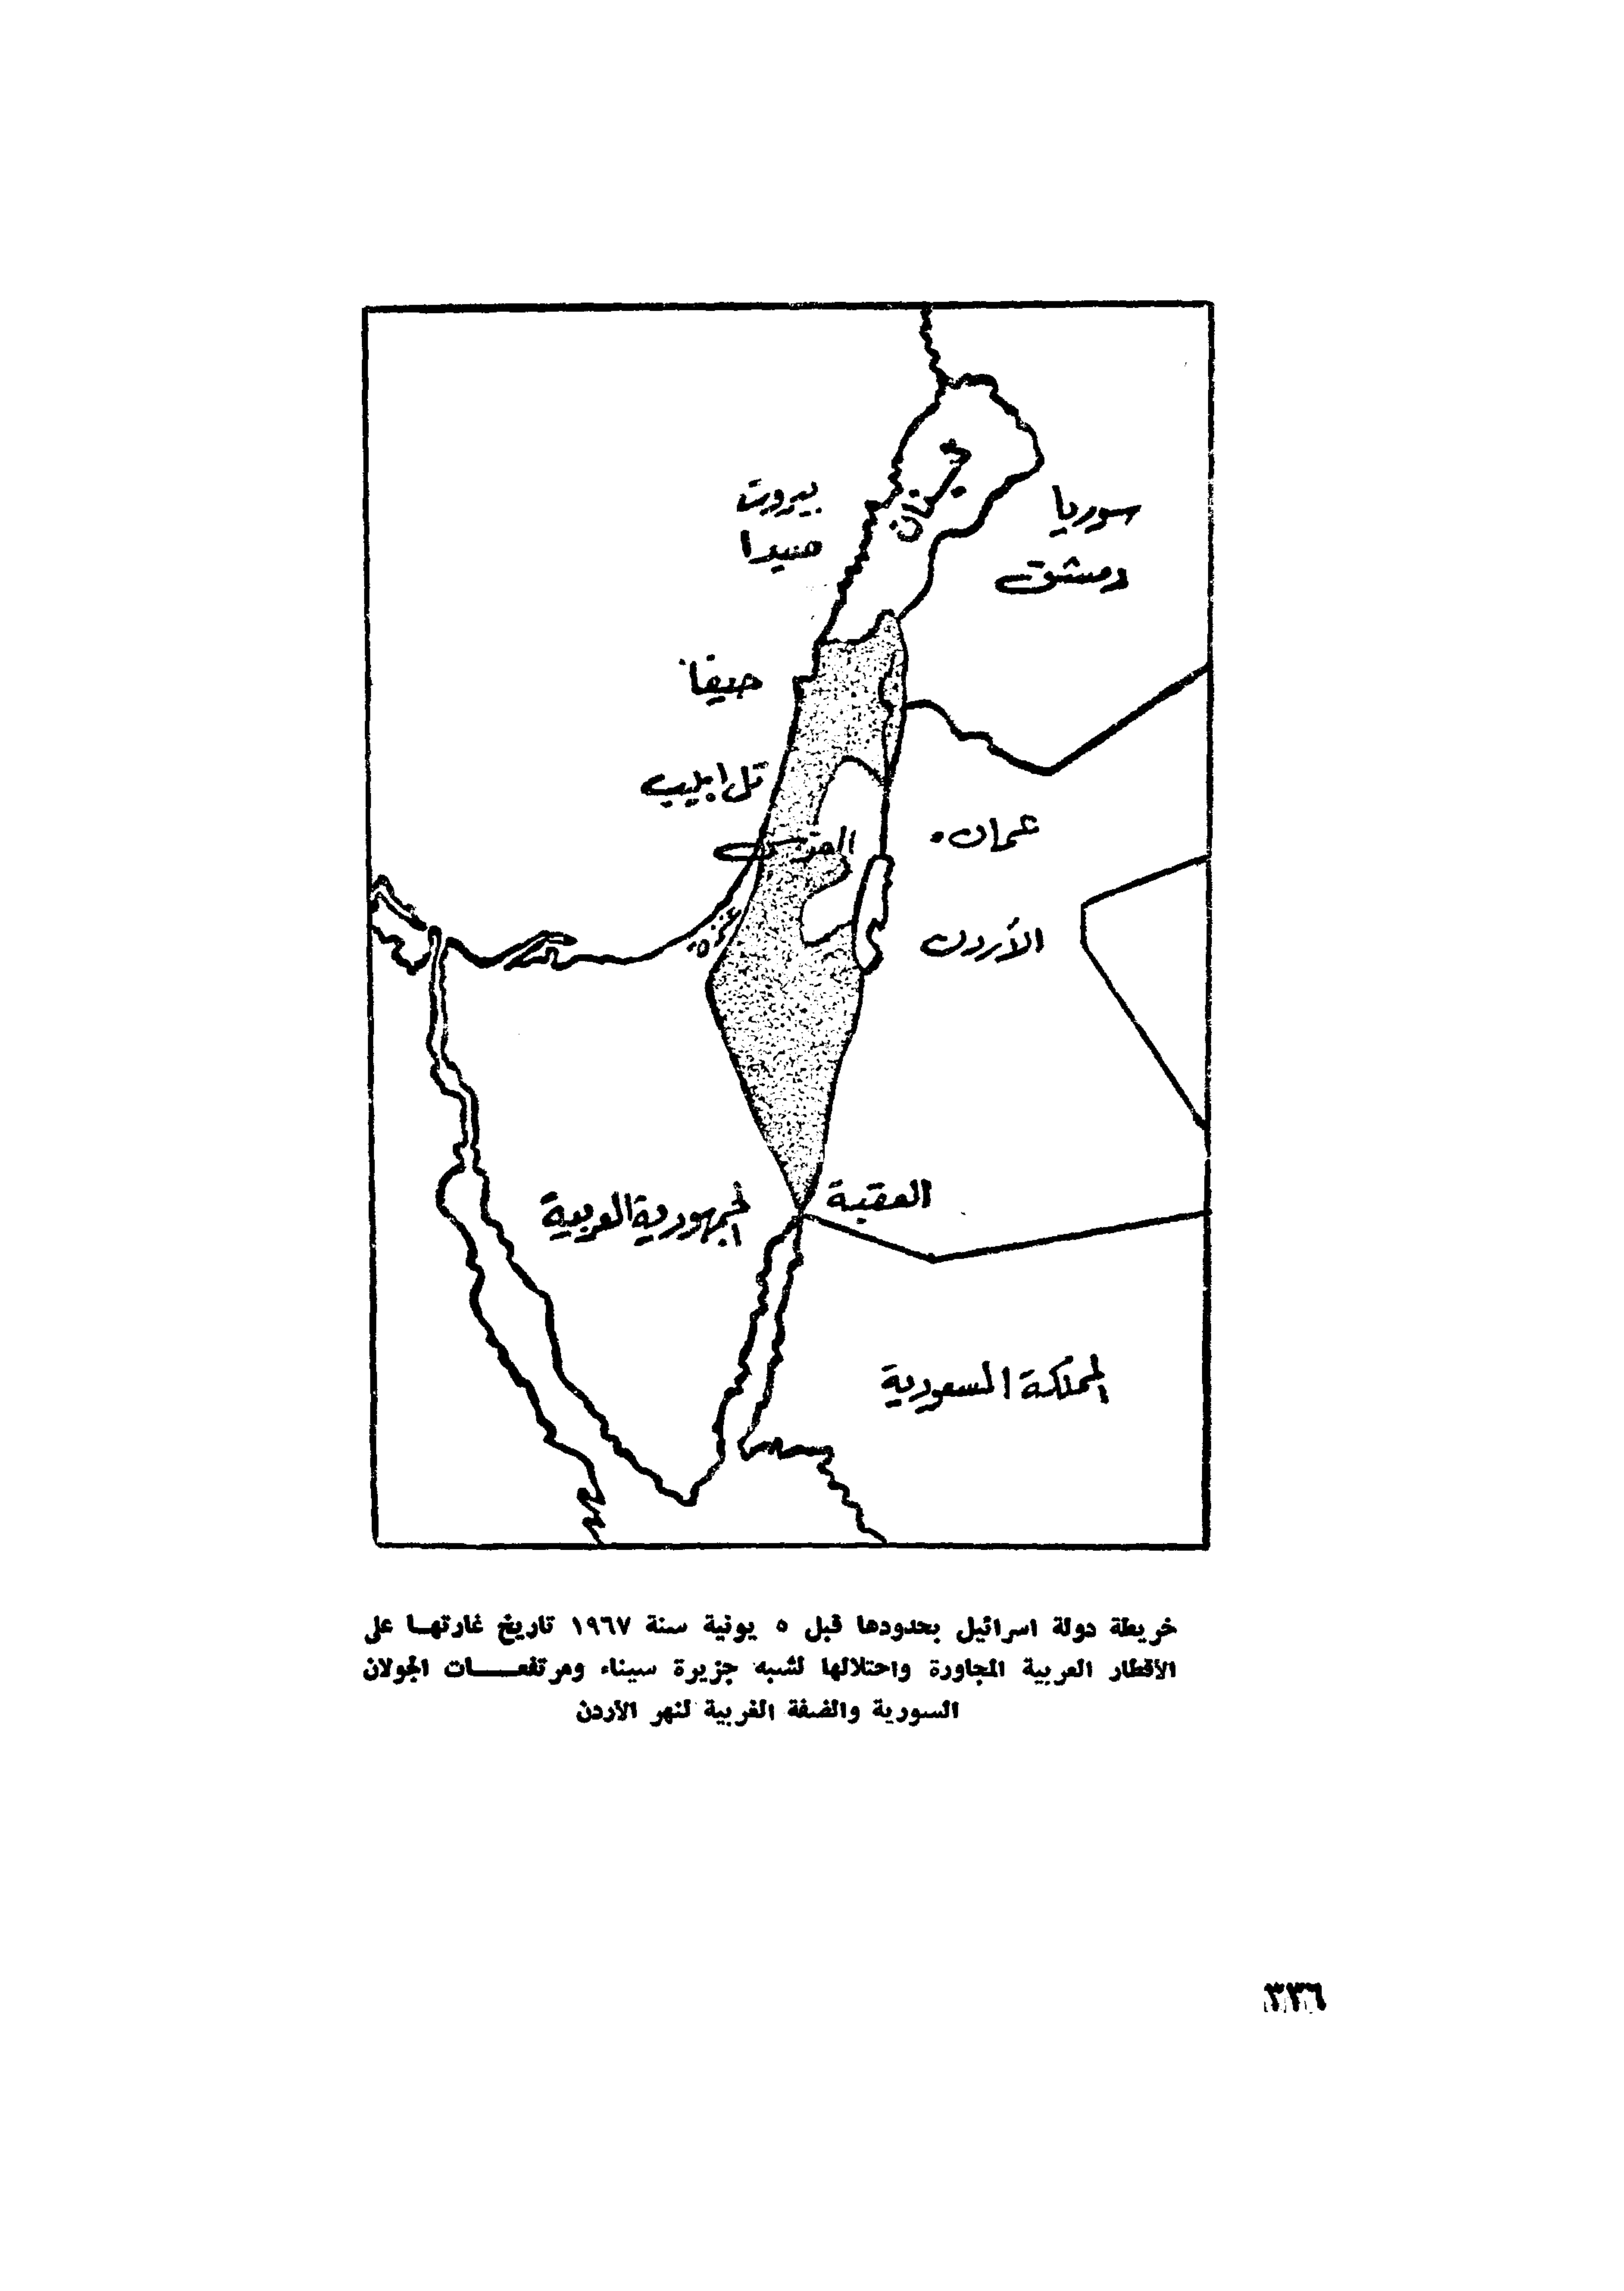 لبنان
سوريا
بيروت
صيدا
دمشق
حيفا
تل ابيب
عمان
القدس
غزة
الأردن
العقبة
الجمهورية العربية
المملكة السعودية
خريطة دولة اسرائيل بحدودها قبل ٥ يونية سنة ١٩٦٧ تاريخ غارتهـا على
الأقطار العربية المجاورة واحتلالها لشبه جزيرة سيناء ومرتفعـــات الجولان
السورية والضفة الغربية لنهر الأردن
٣٣٦